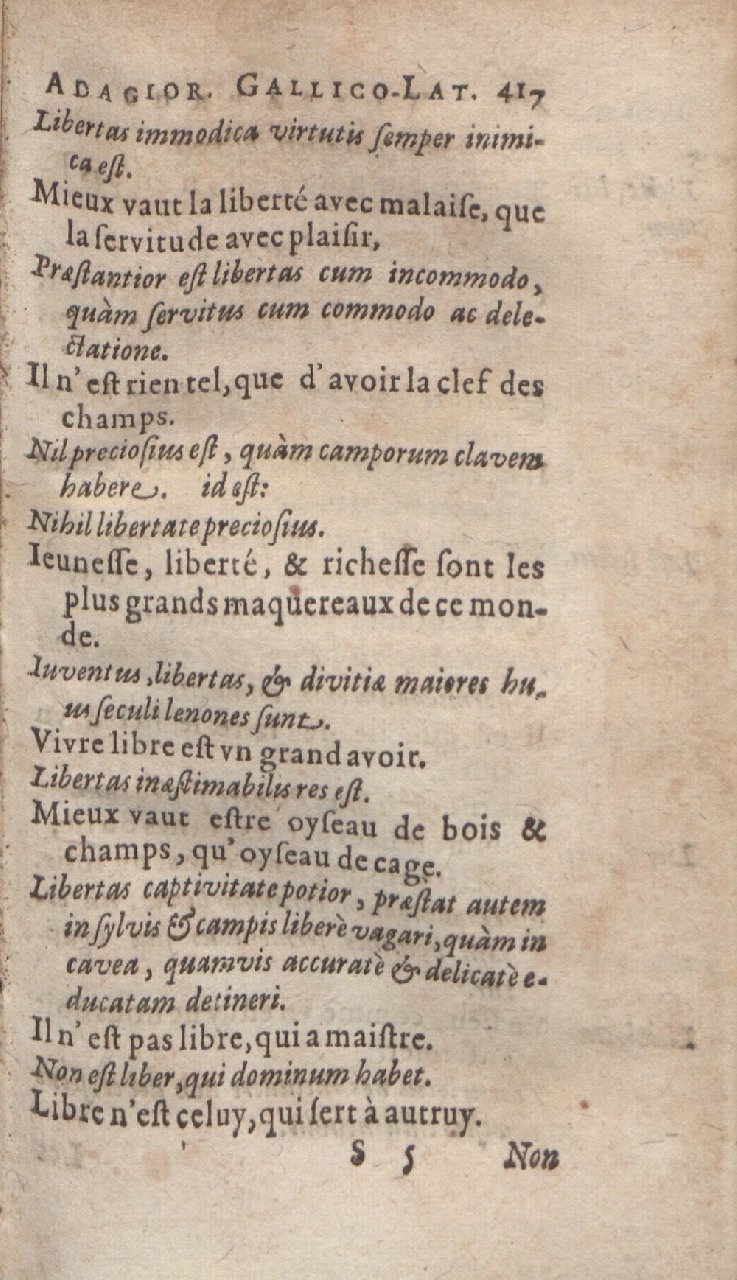 ADAGIOR. GALLICO-LAT. 417
Libertas immodica virtutis ſemper inimi-
ca eſt.
Mieux vaut la liberté avec malaiſe, que
la ſervitude avec plaiſir,
Præſtantior eſt libertas cum incommodo,
quàm ſervitus cum commodo ac dele-
ctatione.
Il n'eſt rien tel, que d'avoir la clef des
champs.
Nil precioſius eſt, quàm camporum clavem
habere. id eſt:
Nihil libertate precioſius.
Ieuneſſe, liberté, & richeſſe ſont les
plus grands maquereaux de ce mon-
de.
Iuventus, libertas, & divitiæ maiores hu-
ius ſeculi lenones ſunt.
Vivre libre eſt vn grand avoir.
Libertas inæſtimabilis res eſt.
Mieux vaut eſtre oyſeau de bois &
champs, qu'oyſeau de cage.
Libertas captivitate potior, præſtat autem
in ſylvis & campis liberè vagari, quàm in
cavea, quamvis accuratè & delicatè e-
ducatam detineri.
Il n'eſt pas libre, qui a maiſtre.
Non eſt liber, qui dominum habet.
Libre n'eſt celuy, qui ſert à autruy.
S 5 Non